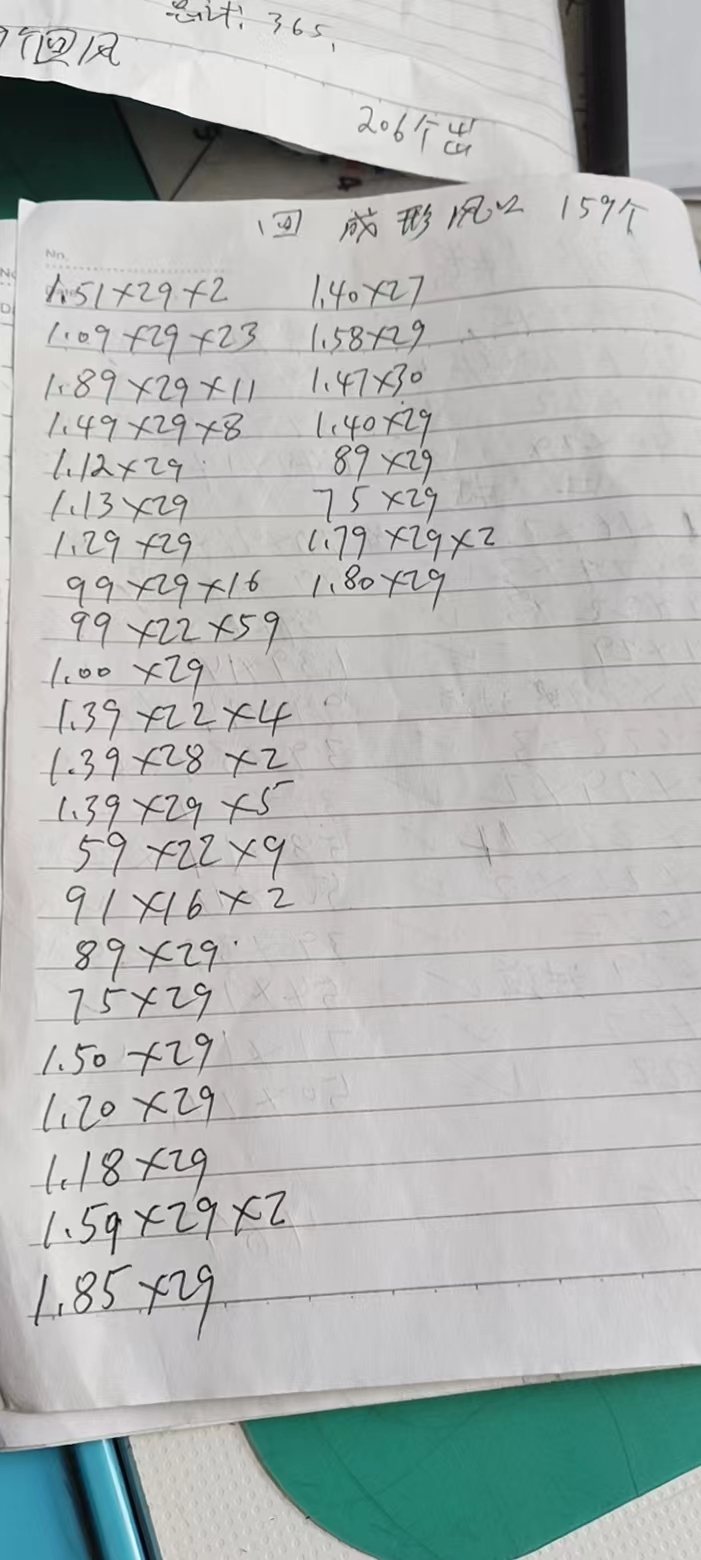 总计: 365.
个回风
206个出
回 成形风口 159个
No.
1.51×29×2
1.09×29×23
1.89×29×11
1.49×29×8
1.12×29
1.13×29
1.29×29
99×29×16
99×22×59
1.00×29
1.39×22×4
1.39×28×2
1.39×29×5
59×22×9
91×16×2
89×29
75×29
1.50×29
1.20×29
1.18×29
1.59×29×2
1.85×29
1.40×27
1.58×29
1.47×30
1.40×29
89×29
75×29
1.79×29×2
1.80×29